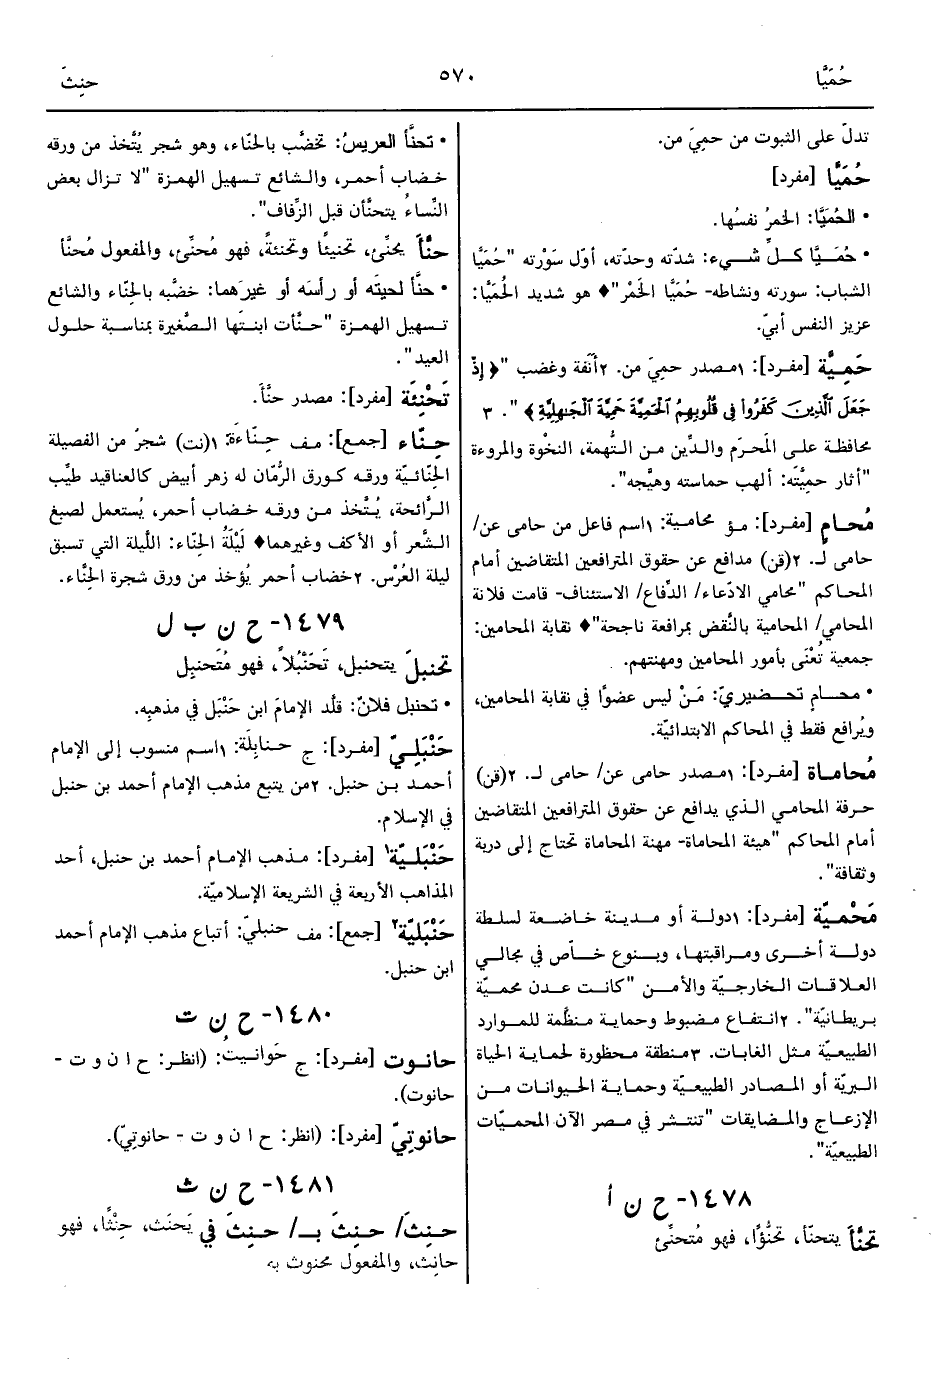 حُمَيَّا
٥٧٠
حنِثَ
تدلّ على الثبوت من حمِيَ من.
حُمَيَّا [مفرد]
• الحُمَيَّا: الخمرُ نفسُها.
• حُمَـيَّا كـلِّ شـيء: شدّته وحدّته، أوّل سَوْرته "حُمَيَّا
الشباب: سورته ونشاطه- حُمَيَّا الخمْر"♦ هو شديد الحُمَيَّا:
عزيز النفس أبيّ.
حَمِيَّة [مفـرد]: ١مـصدر حمِيَ من. ٢أَنَفة وغضب "﴿إِذْ
جَعَلَ ٱلَّذِينَ كَفَرُوا۟ فِى قُلُوبِهِمُ ٱلْحَمِيَّةَ حَمِيَّةَ ٱلْجَـٰهِلِيَّةِ﴾". ٣
محافظـة علـى المَحرَم والـدِّين مـن الـتُّهمة، النخْوة والمروءة
"أثار حميَّتَه: ألهب حماسته وهيَّجه".
مُحـامٍ [مفرد]: مـؤ محاميـة: ١اسم فاعل من حامى عن/
حامى لـ. ٢(قن) مدافع عن حقوق المترافعين المتقاضين أمام
المحـاكم "محامي الادّعاء/ الدِّفاع/ الاستئناف- قامت فلانة
المحامي/ المحامية بالنَّقض بمرافعة ناجحة"♦ نقابة المحامين:
جمعية تُعْنَى بأمور المحامين ومهنتهم.
• محـامٍ تحـضيريّ: مَـنْ ليس عضوًا في نقابة المحامين،
ويُرافع فقط في المحاكم الابتدائيّة.
مُحامـاة [مفـرد]: ١مـصدر حامى عن/ حامى لـ. ٢(قن)
حرفـة المحامـي الـذي يدافع عن حقوق المترافعين المتقاضين
أمام المحاكم "هيئة المحاماة- مهنة المحاماة تحتاج إلى دربة
وثقافة".
مَحْمـيَّة [مفـرد]: ١دولـة أو مـدينة خاضـعة لسلطة
دولـة أخـرى ومـراقبتها، وبـنوع خـاصّ في مجالَي
العـلاقـات الخارجـيّة والأمـن "كانـت عـدن محمـيّة
بـريطانيّة". ٢انـتفاع مـضبوط وحمايـة منظَّمة للمـوارد
الطبيعيّة مثل الغابات. ٣منطقة محظورة لحماية الحياة
الـبريّة أو المـصادر الطبيعـيَّة وحمايـة الحـيوانات مـن
الإزعـاج والمـضايقات "تنتـشر في مـصر الآن المحمـيّات
الطبيعيّة".
١٤٧٨- ح ن أ
تحنَّأ يتحنّأ، تحنُّؤًا، فهو مُتحنِّئ
• تحنَّأ العريسُ: تخضَّب بالحنَّاء، وهو شجر يُتَّخذ من ورقه
خـضاب أحمـر، والـشائع تـسهيل الهمـزة "لا تـزال بعض
النِّساءُ يتحنَّأن قبل الزِّفاف".
حنَّأَ يحنِّئ، تحنيئًا وتحنئةً، فهو مُحنِّئ، والمفعول مُحنَّأ
• حنَّأ لحيتَه أو رأسَه أو غيرَهما: خضَّبه بالحِنَّاء والشائع
تـسهيل الهمـزة "حـنَّأت ابنـتَها الـصَّغيرة بمناسـبة حلـول
العيد".
تَحْنِئَة [مفرد]: مصدر حنَّأَ.
حِـنّاء [جمع]: مـف حِـنّاءَة: ١(نت) شجرٌ من الفصيلة
الحنّائـيّة ورقـه كـورق الرُّمّان له زهر أبيض كالعناقيد طيِّب
الـرَّائحة، يُـتَّخذ مـن ورقـه خـضاب أحمر، يُستعمل لصبغ
الـشَّعر أو الأكف وغيرهمـا♦ لَيْلَةُ الحِنّاء: اللّيلة التي تسبق
ليلة العُرْس. ٢خضاب أحمر يُؤخذ من ورق شجرة الحِنّاء.
١٤٧٩- ح ن ب ل
تحنبلَ يتحنبل، تَحَنْبُلاً، فهو مُتَحنبِل
• تحنبل فلانٌ: قلَّد الإمامَ ابن حَنْبَل في مذهبِه.
حَنْبَلـيّ [مفـرد]: ج حـنابِلَة: ١اسـم منسوب إلى الإمام
أحمـد بـن حنبل. ٢من يتبع مذهب الإمام أحمد بن حنبل
في الإسلام.
حَنْبَلـيَّة١ [مفـرد]: مـذهب الإمـام أحمـد بن حنبل، أحد
المذاهب الأربعة في الشريعة الإسلاميّة.
حَنْبَليَّة٢ [جمع]: مف حنبليّ: أتباع مذهب الإمام أحمد
ابن حنبل.
١٤٨٠- ح ن ت
حانـوت [مفـرد]: ج حَوانيـت: (انظـر: ح ا ن و ت -
حانوت).
حانوتيّ [مفرد]: (انظر: ح ا ن و ت - حانوتيّ).
١٤٨١- ح ن ث
حـنِثَ/ حـنِثَ بـ/ حـنِثَ في يَحنَث، حِنْثًا، فهو
حانِث، والمفعول محنوث به